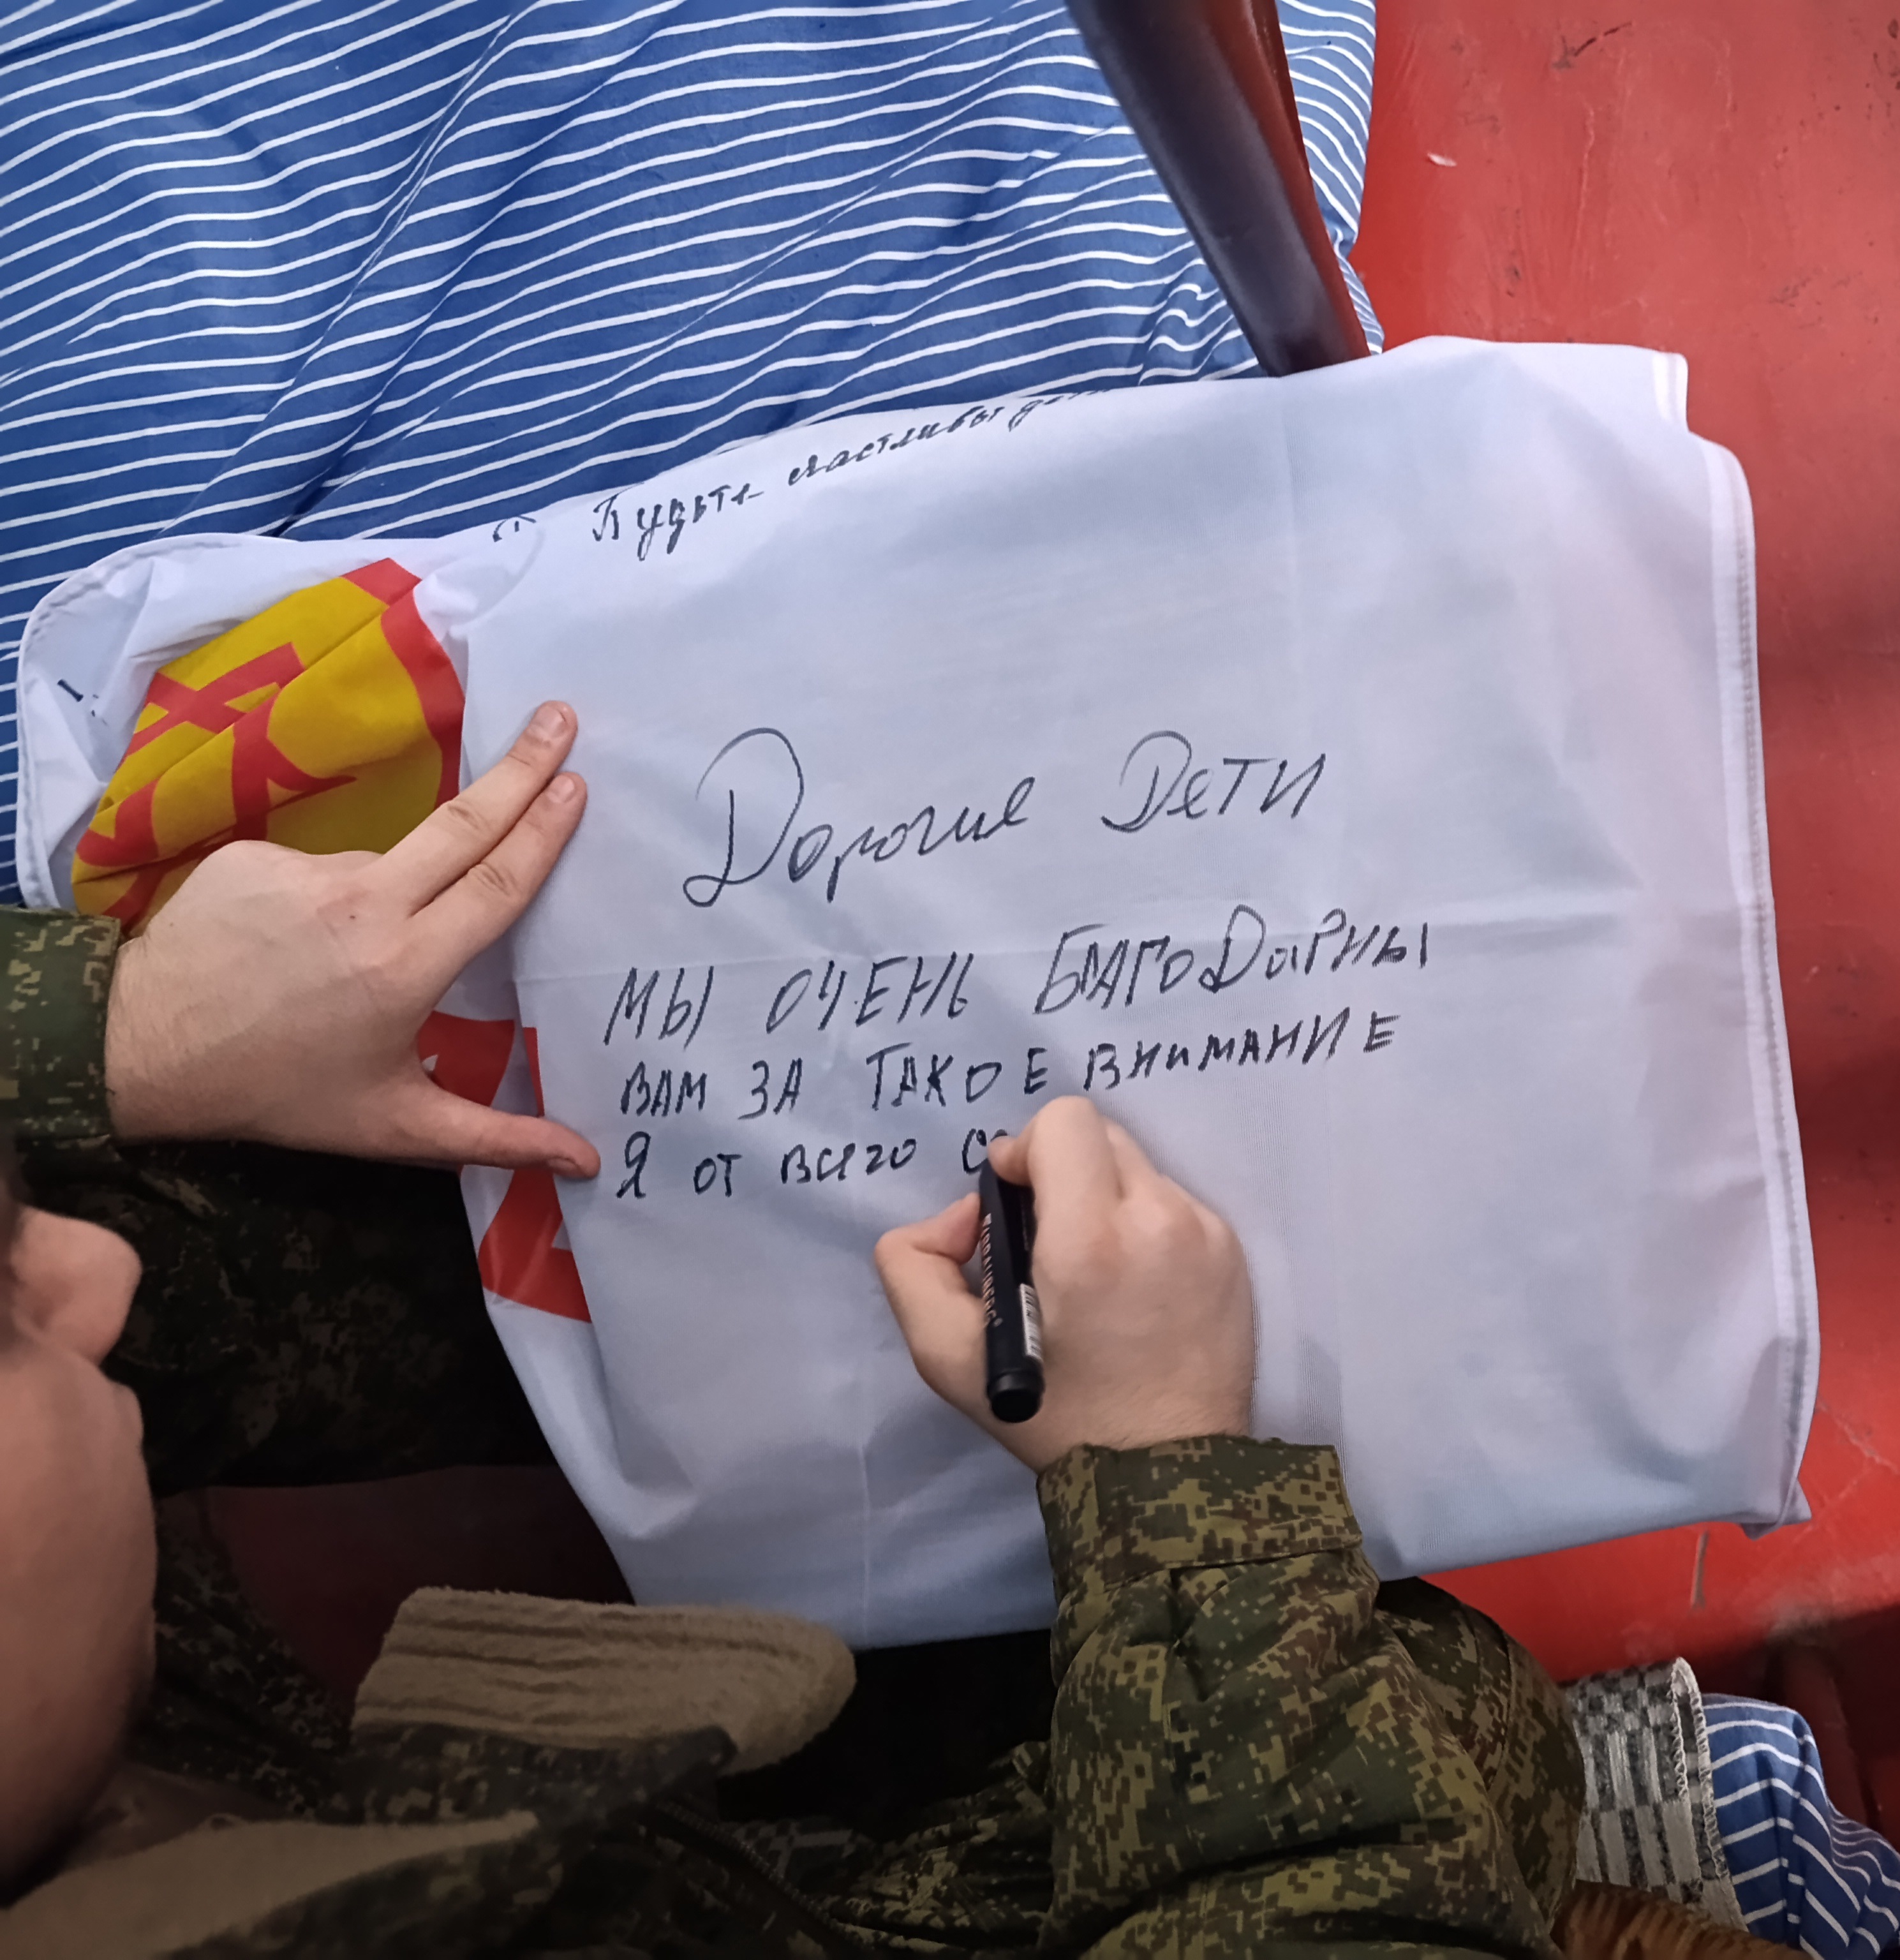 Будьте счастливы
Дорогие Дети
МЫ ОЧЕНЬ БЛАГОДаРНЫ
ВАМ ЗА ТАКОЕ ВНИМАНИЕ
Я от всего